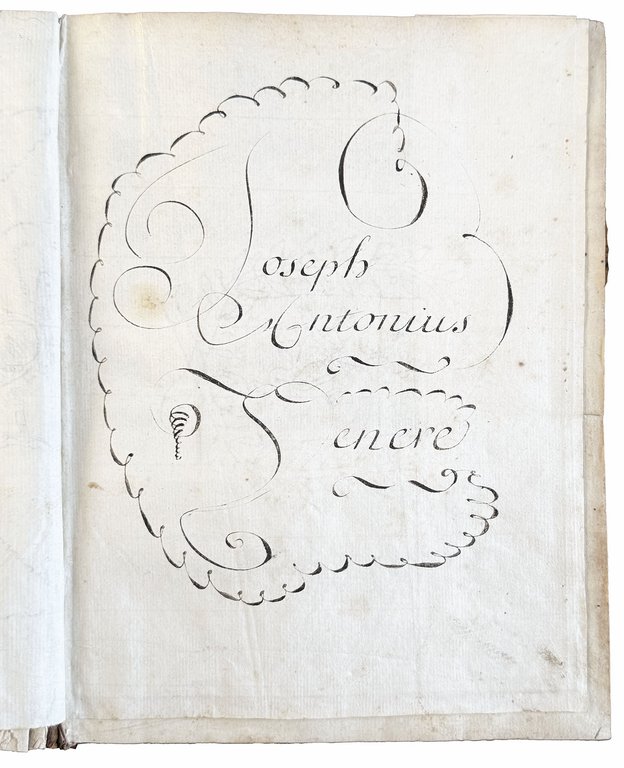 Joseph
Antonius
Tencré